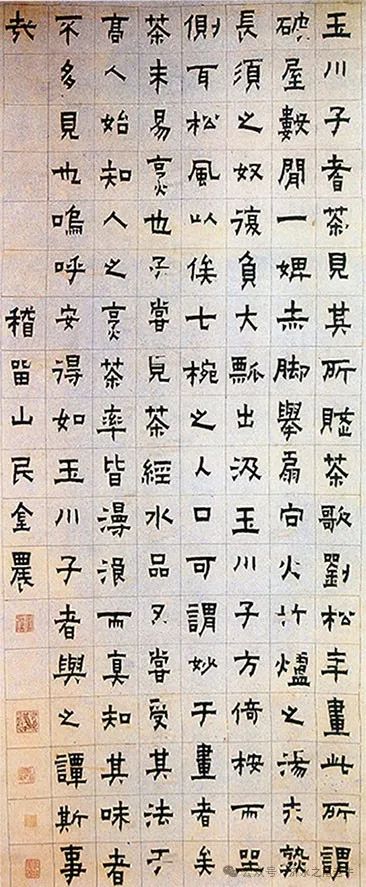 玉川子耆茶見其所賦茶歌劉松年畫此所謂
破屋數閒一婢赤脚舉扇向火竹爐之湯未熟
長須之奴復負大瓢出汲玉川子方倚桉而坐
側耳松風以俟七椀之入口可謂妙于畫者矣
茶未易烹也予嘗見茶經水品又嘗受其法于
高人始知人之烹茶率皆漫浪而真知其味者
不多見也嗚呼安得如玉川子者與之譚斯事
哉 稽留山民金農
公众号